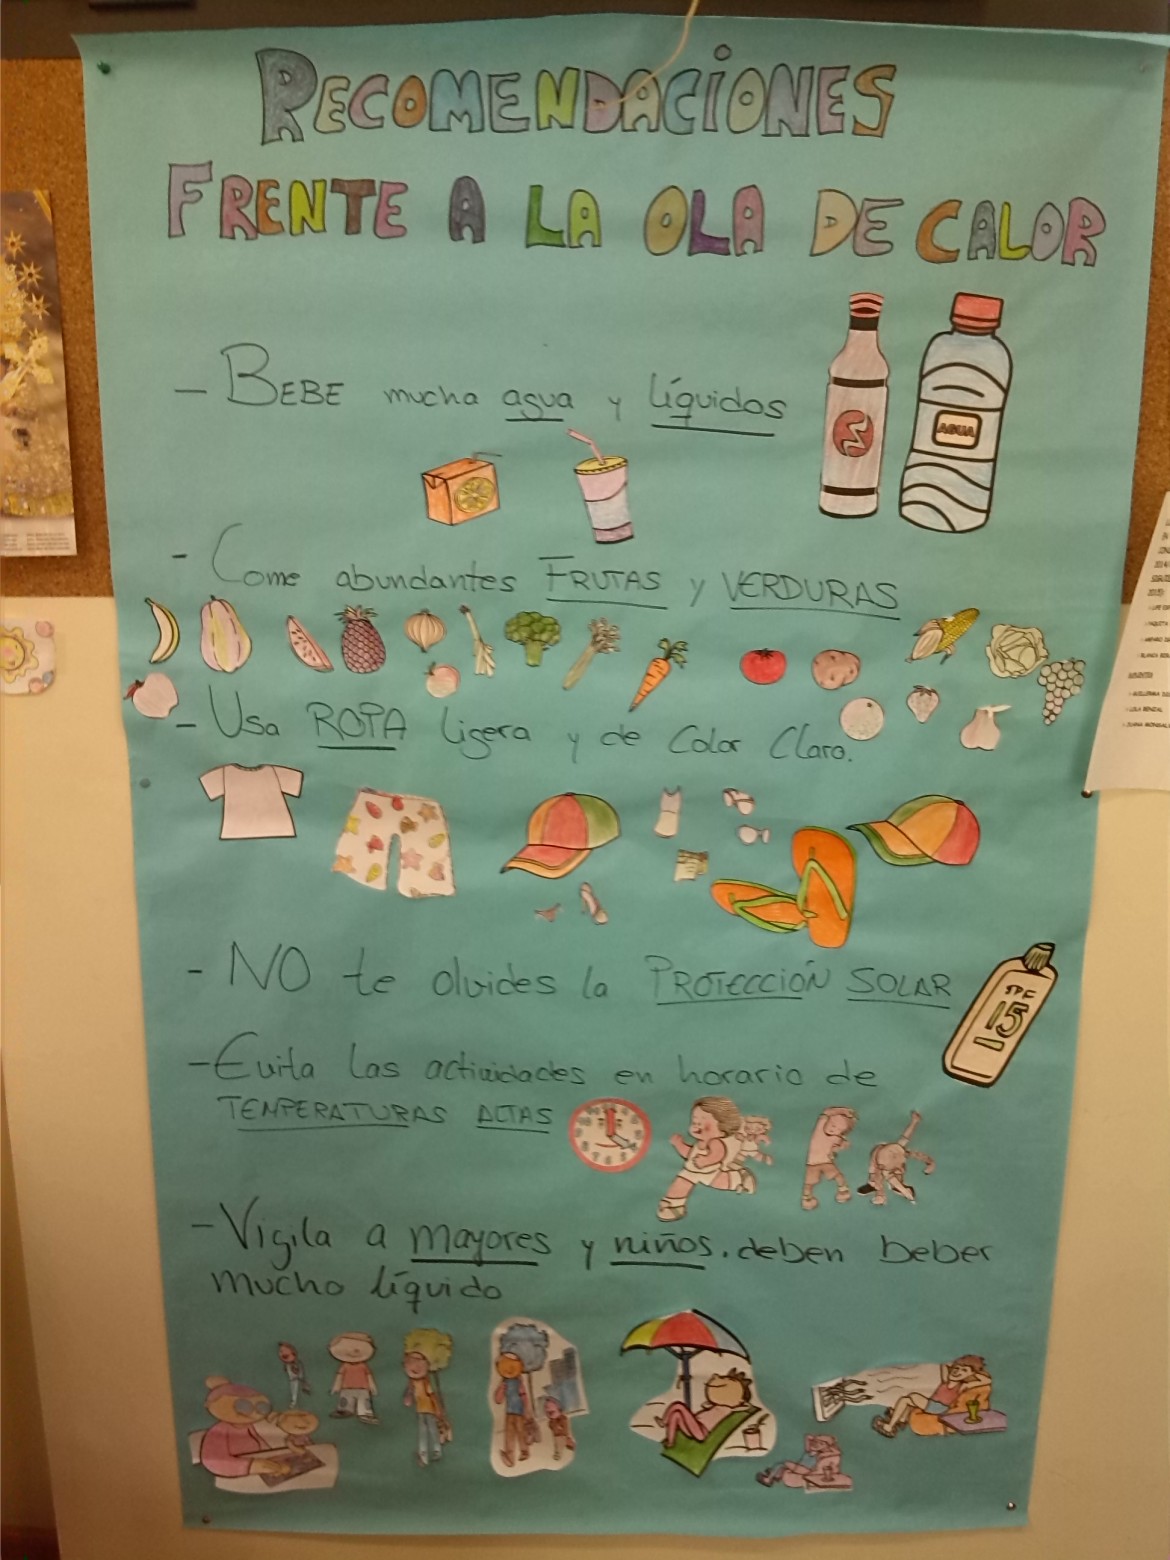 RECOMENDACIONES
FRENTE A LA OLA DE CALOR
- BEBE mucha agua y líquidos
AGUA
- Come abundantes FRUTAS y VERDURAS
- Usa ROPA ligera y de Color Claro.
- NO te olvides la PROTECCIÓN SOLAR
SPF
15
- Evita las actividades en horario de
TEMPERATURAS ALTAS
- Vigila a mayores y niños. deben beber
mucho líquido